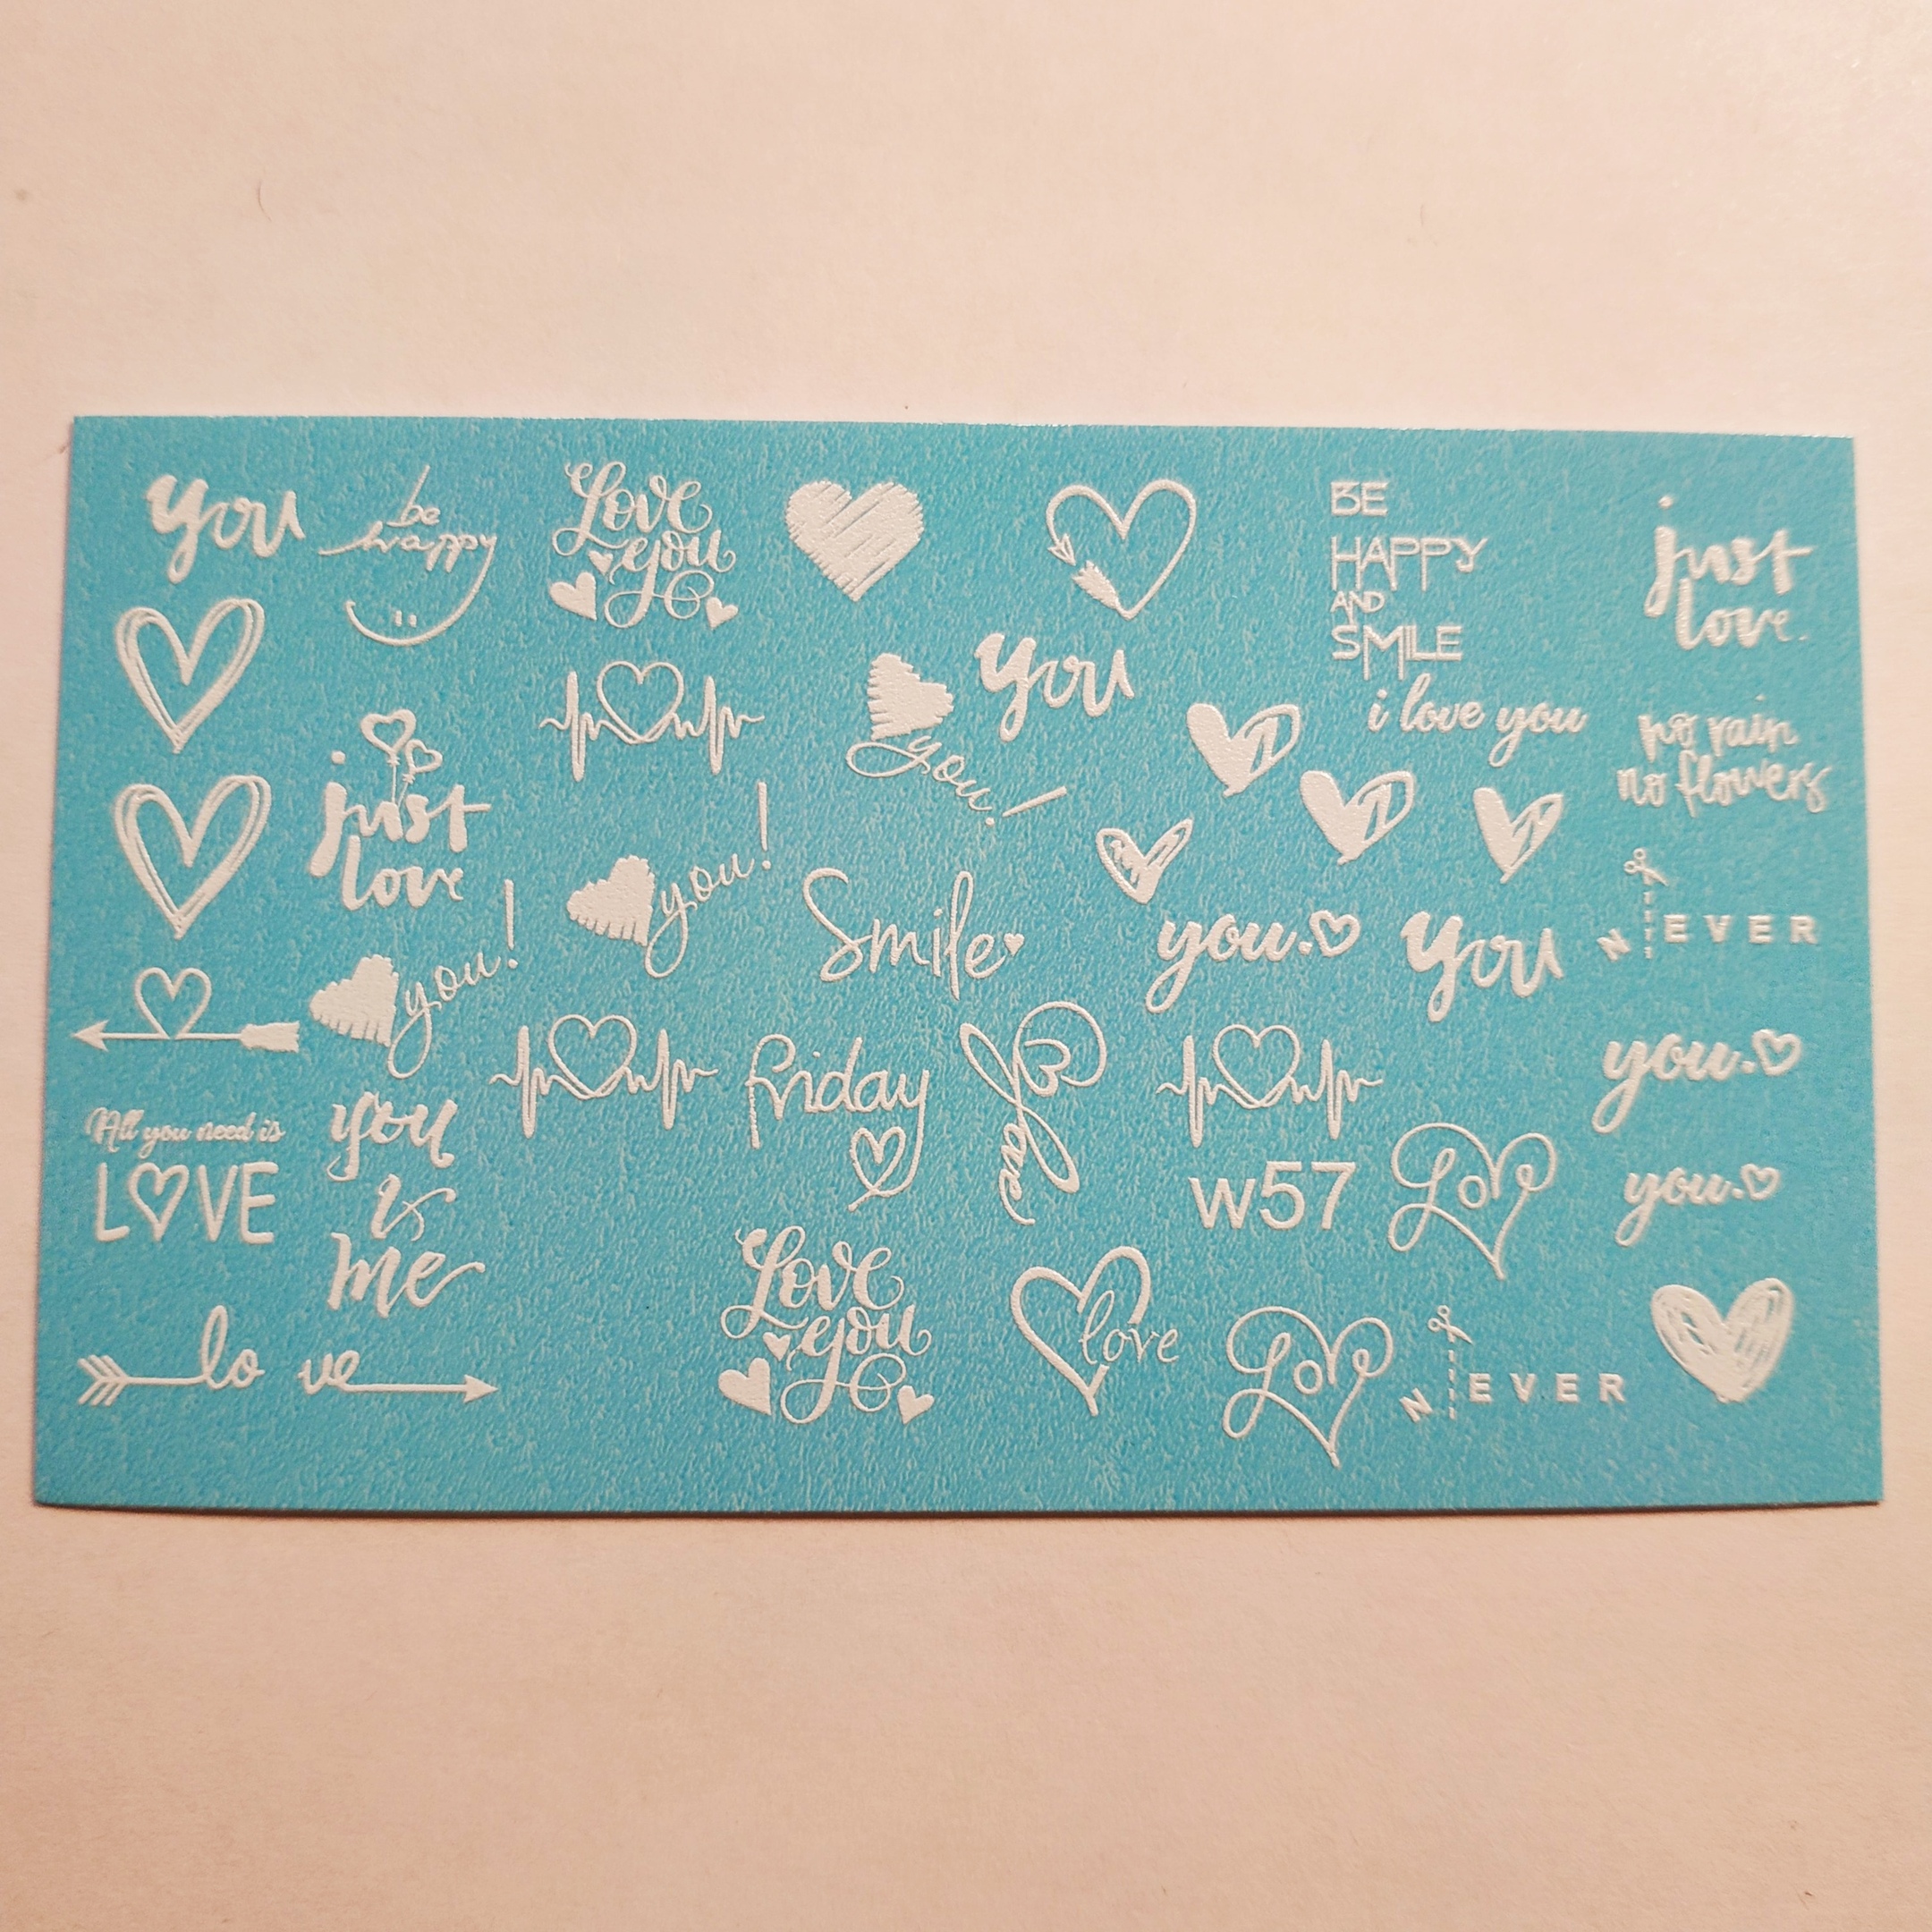 you
be
happy
Love
you
BE
HAPPY
AND
SMILE
just
love.
you
you!
i love you
no rain
no flowers
just
love
you!
you!
Smile
you.
you
N EVER
friday
love
you.
All you need is
LOVE
you
&
me
w57
Love
you.
Love
you
love
Love
N EVER
lo ve